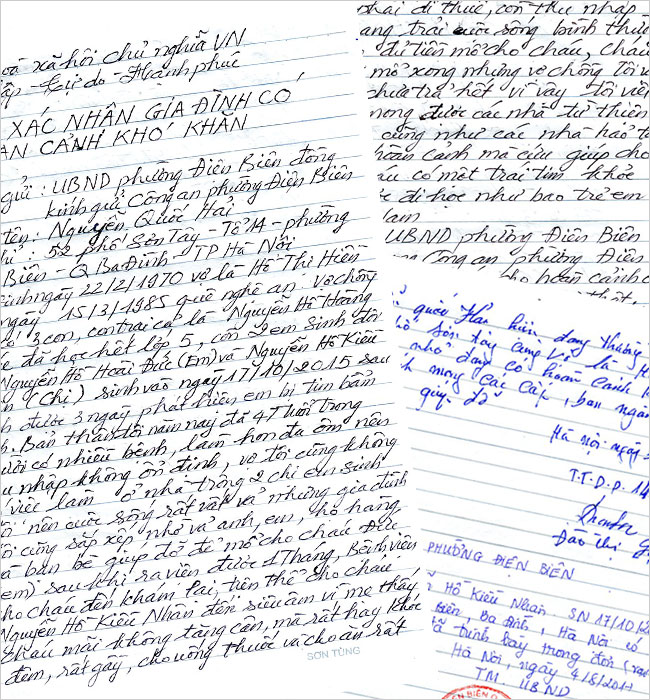 oà xã hội chủ nghĩa VN
ập - tự do - Hạnh phúc
XÁC NHÂN GIA ĐÌNH CÓ
AN CẢNH KHÓ KHĂN
gửi : UBND phường Điện Biên đồng
kính gửi Công an phường Điện Biên
tên : Nguyễn Quốc Hải
hỉ : 52 phố Sơn Tây - Tổ 14 - phường
Biên - Q Ba Đình - TP Hà Nội
Sinh ngày 22/2/1970 vợ là Hồ Thị Hiền
ngày 15/3/1985 quê nghệ an. Vợ chồng
3 con, con trai cả là Nguyễn Hồ Hoàng
đã học hết lớp 5, còn 2 em sinh đôi
Nguyễn Hồ Hoài Đức (Em) và Nguyễn Hồ Kiều
n (Chị) sinh vào ngày 17/10/2015 sau
h được 3 ngày phát hiện em bị tim bẩm
h. Bản thân tôi năm nay đã 47 tuổi trong
ười có nhiều bệnh, làm hơn đau ốm nên
u nhập không ổn định, vợ tôi cũng không
việc làm ở nhà trông 2 chị em sinh
ôi nên cuộc sống rất vất vả nhưng gia đình
ôi cũng sắp xếp nhờ vả anh, em, họ hàng
à bạn bè giúp đỡ để mổ cho cháu Đức
em) sau khi ra viện được 1 tháng, Bệnh viện
ho cháu đến khám lại, tiện thể cho cháu
Nguyễn Hồ Kiều Nhân đến siêu âm vì mẹ thấy
cháu mãi không tăng cân, mà rất hay khóc
đêm, rất gầy, cho uống thuốc và cho ăn rất
SƠN TÙNG
phải đi thuê, còn thu nhập
ang trải cuộc sống bình thư
đủ tiền mổ cho cháu, cháu
mổ xong nhưng vợ chồng tôi v
chưa trả hết vì vậy tôi viế
mong được các nhà từ thiện
cũng như các nhà hảo tâ
hoàn cảnh mà cứu giúp cho
áu có một trái tim khỏe
c đi học như bao trẻ em
làm
UBND phường Điện Biên
ng Công an phường Điện
cho hoàn cảnh c
quốc Hải hiện đang thường
hố Sơn Tây cùng vợ là
nhỏ đang có hoàn cảnh
h mong các cấp, ban ngàn
giúp đỡ
Hà nội ngày
T.T.D.P. 14
Đào Thị
PHƯỜNG ĐIỆN BIÊN
Hồ Kiều Nhân SN 17/10/20
Biên, Ba Đình, Hà Nội có
ã trình bày trong đơn
Hà Nội, ngày 4/8/201
TM. UBND